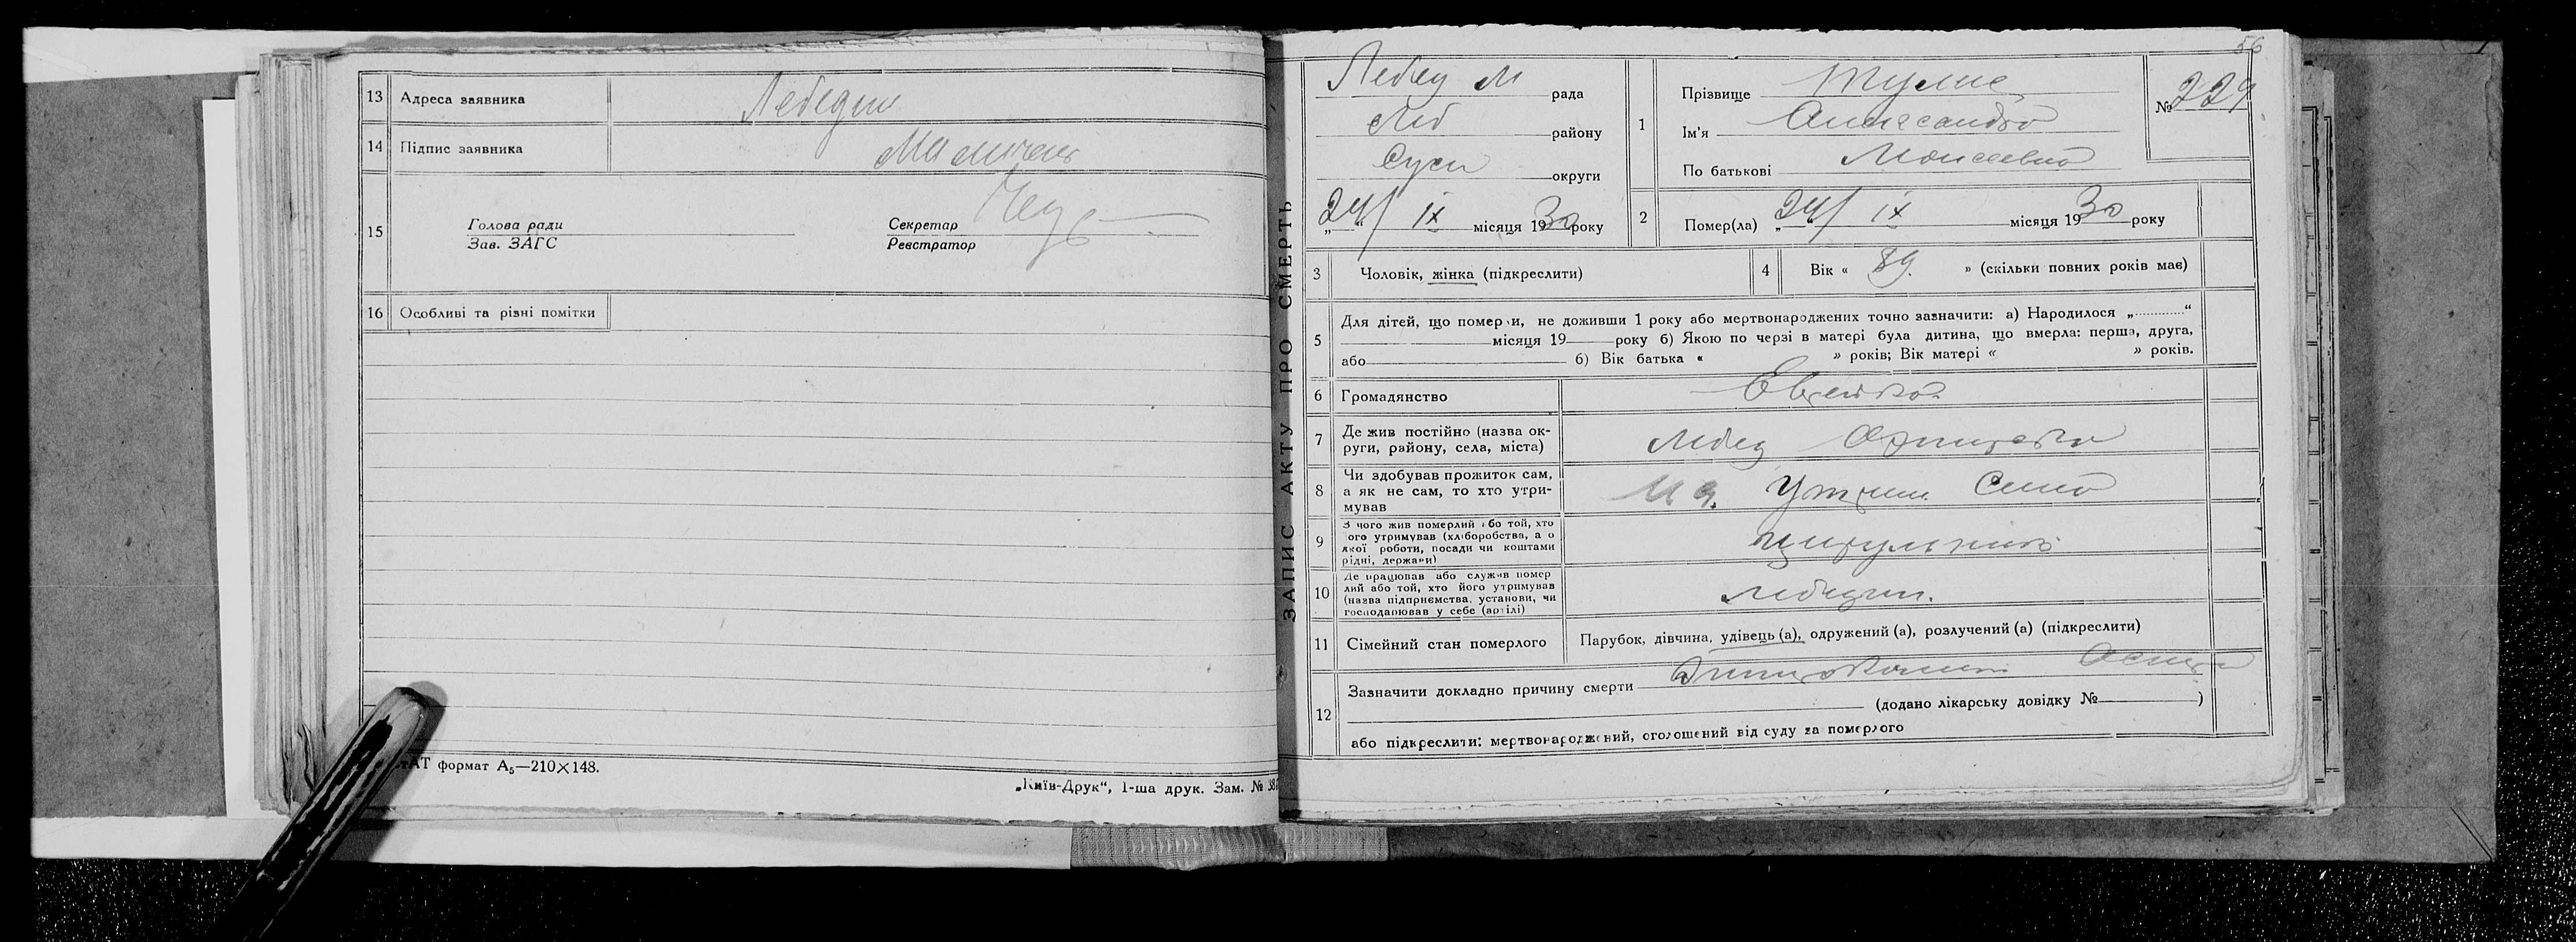 13 Адреса заявника Лебедин
14 Підпис заявника
15 Голова ради
Зав. ЗАГС
Секретар
Реєстратор
16 Особливі та різні помітки
формат А₅—210×148.
„Київ-Друк“, 1-ша друк. Зам. №
56
ЗАПИС АКТУ ПРО СМЕРТЬ
Лебед М рада
Леб району
Сум округи
„24/“ IX місяця 1930 року
1 Прізвище
Ім'я Александра
По батькові Моисеевна
№ 229
2 Помер(ла) „24/ IX місяця 1930 року
3 Чоловік, жінка (підкреслити)
4 Вік « 89. » (скільки повних років має)
5 Для дітей, що померли, не доживши 1 року або мертвонароджених точно зазначити: а) Народилося „............“
місяця 19 року б) Якою по черзі в матері була дитина, що вмерла: перша, друга,
або б) Вік батька « » років; Вік матері « » років.
6 Громадянство
7 Де жив постійно (назва ок-
руги, району, села, міста) Лебед
8 Чи здобував прожиток сам,
а як не сам, то хто утри-
мував
9 З чого жив померлий або той, хто
ого утримував (хліборобства, а о
якої роботи, посади чи коштами
рідні, держави)
10 Де працював або служив помер
лий або той, хто його утримував
(назва підприємства, установи, чи
господарював у себе (артілі) Лебедин.
11 Сімейний стан померлого Парубок, дівчина, удівець (а), одружений (а), розлучений (а) (підкреслити)
12 Зазначити докладно причину смерти
(додано лікарську довідку № )
або підкреслити: мертвонароджений, оголошений від суду за померлого